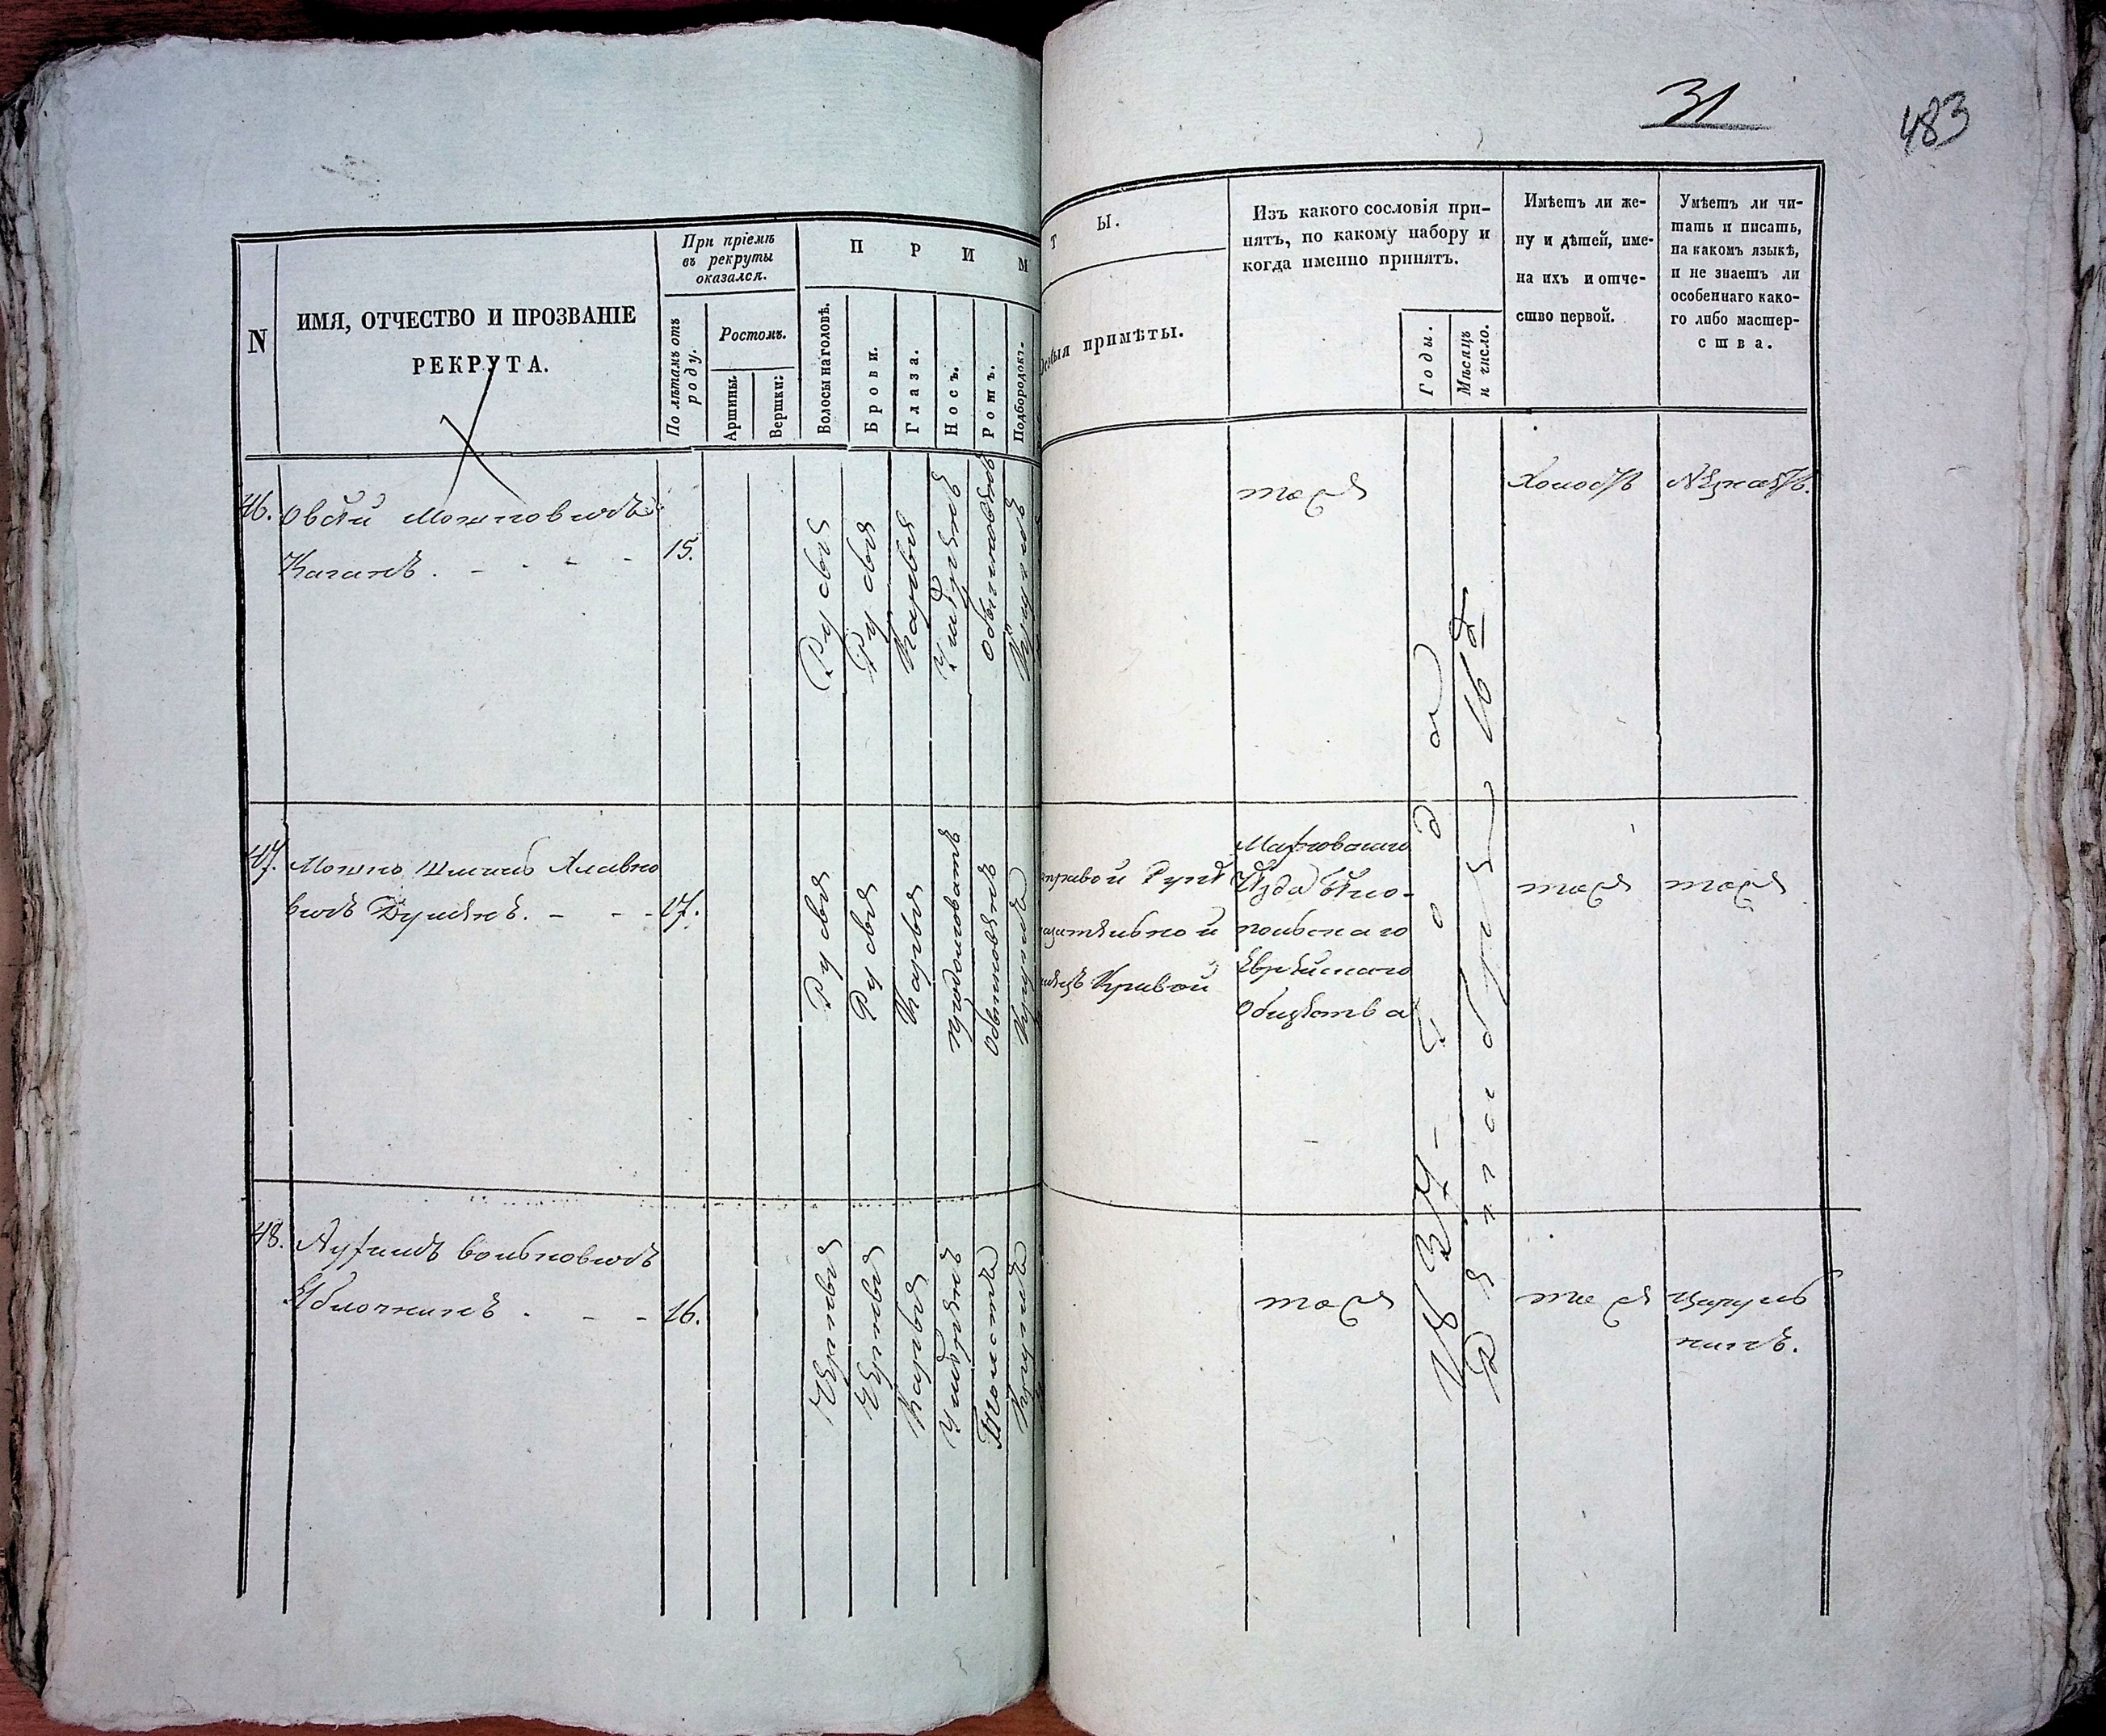 31
483
N
ИМЯ, ОТЧЕСТВО И ПРОЗВАНІЕ
РЕКРУТА.
При пріемѣ
въ рекруты
оказался.
По лѣтамъ отъ
роду.
Ростомъ.
Аршины.
Вершки.
П Р И М
Волосы на головѣ.
Брови.
Глаза.
Носъ.
Ротъ.
Подбородокъ.
Т Ы.
примѣты.
Изъ какого сословія при-
нятъ, по какому набору и
когда именно принятъ.
Годы.
Мѣсяцъ
и число.
Имѣетъ ли же-
ну и дѣтей, име-
на ихъ и отче-
ство первой.
Умѣетъ ли чи-
тать и писать,
на какомъ языкѣ,
и не знаетъ ли
особеннаго како-
го либо мастер-
ства.
46.
Овсѣй Мошковичъ
Каганъ.
15.
Русыя
Русыя
Карыя
Умѣренъ
Обыкновенъ
Круглъ
тоже
Холостъ
Незнаетъ.
47.
Мошко
вичъ
17.
Русыя
Русыя
Карыя
продолговатъ
обыкновенъ
правой руки
кривой
Уѣзда Бѣло-
польскаго
Еврейскаго
Общества
тоже
тоже
48.
Вольковичъ
Яблочникъ
16.
Черныя
Черныя
Карыя
Умѣренъ
тоже
тоже
Цируль
никъ.
1837 - года